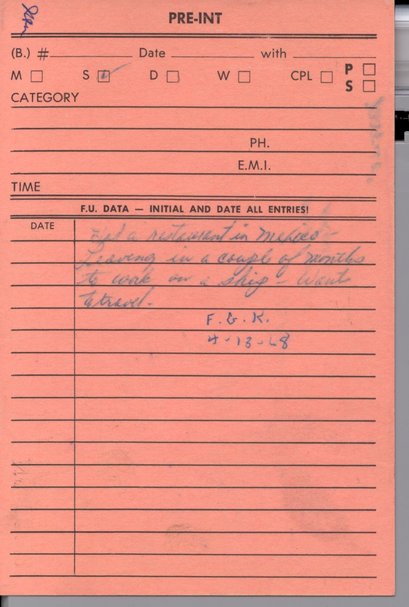 PRE-INT
(B.) # Date with
M S D W CPL P
S
CATEGORY
PH.
E.M.I.
TIME
F.U. DATA — INITIAL AND DATE ALL ENTRIES!
DATE
Had a restaurant in Mexico -
Leaving in a couple of months
to work on a ship - Wants
to travel.
F. G. K.
4-13-68